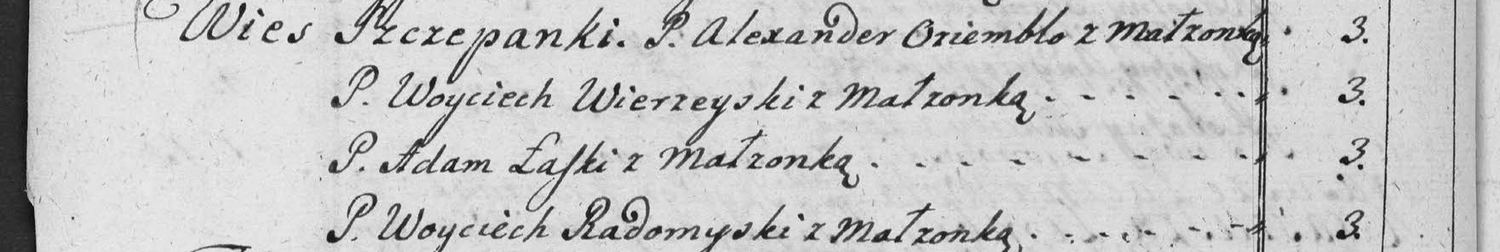 Wies Szczepanki. P. Alexander Oziembło z Małzonką. 3.
P. Woyciech Wierzeyski z Małzonką. - - - - - - - . 3.
P. Adam Łaſki z Małzonką. - - - - - - - - . 3.
P. Woyciech Radomyski z Małzonką. - - - - - - . 3.